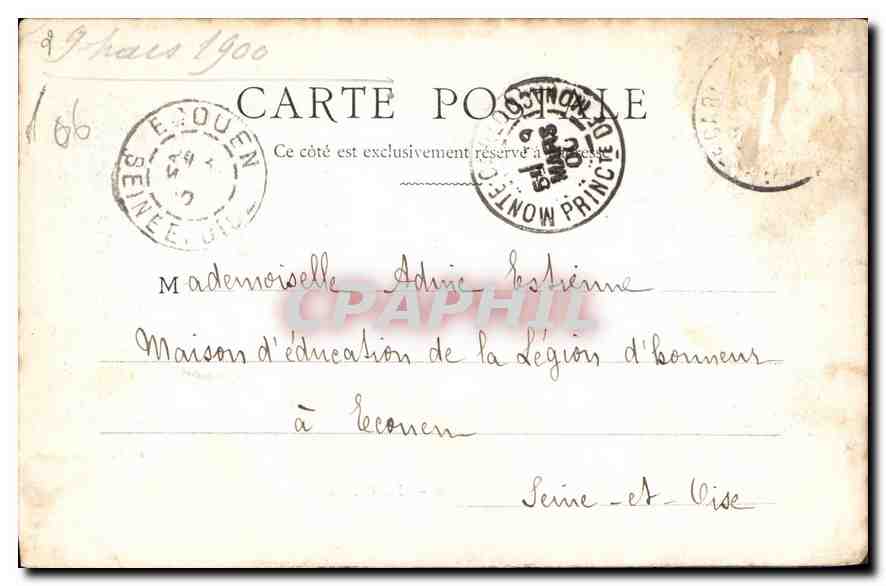 9 mars 1900
66
CARTE POSTALE
Ce côté est exclusivement réservé à l'adresse
ECOUEN
SEINE ET OISE
MONTE CARLO
PRINCTE DE MONACO
9
MARS
00
CPAPHIL
Mademoiselle Estienne
Maison d'éducation de la Légion d'honneur
à Ecouen
Seine-et-Oise